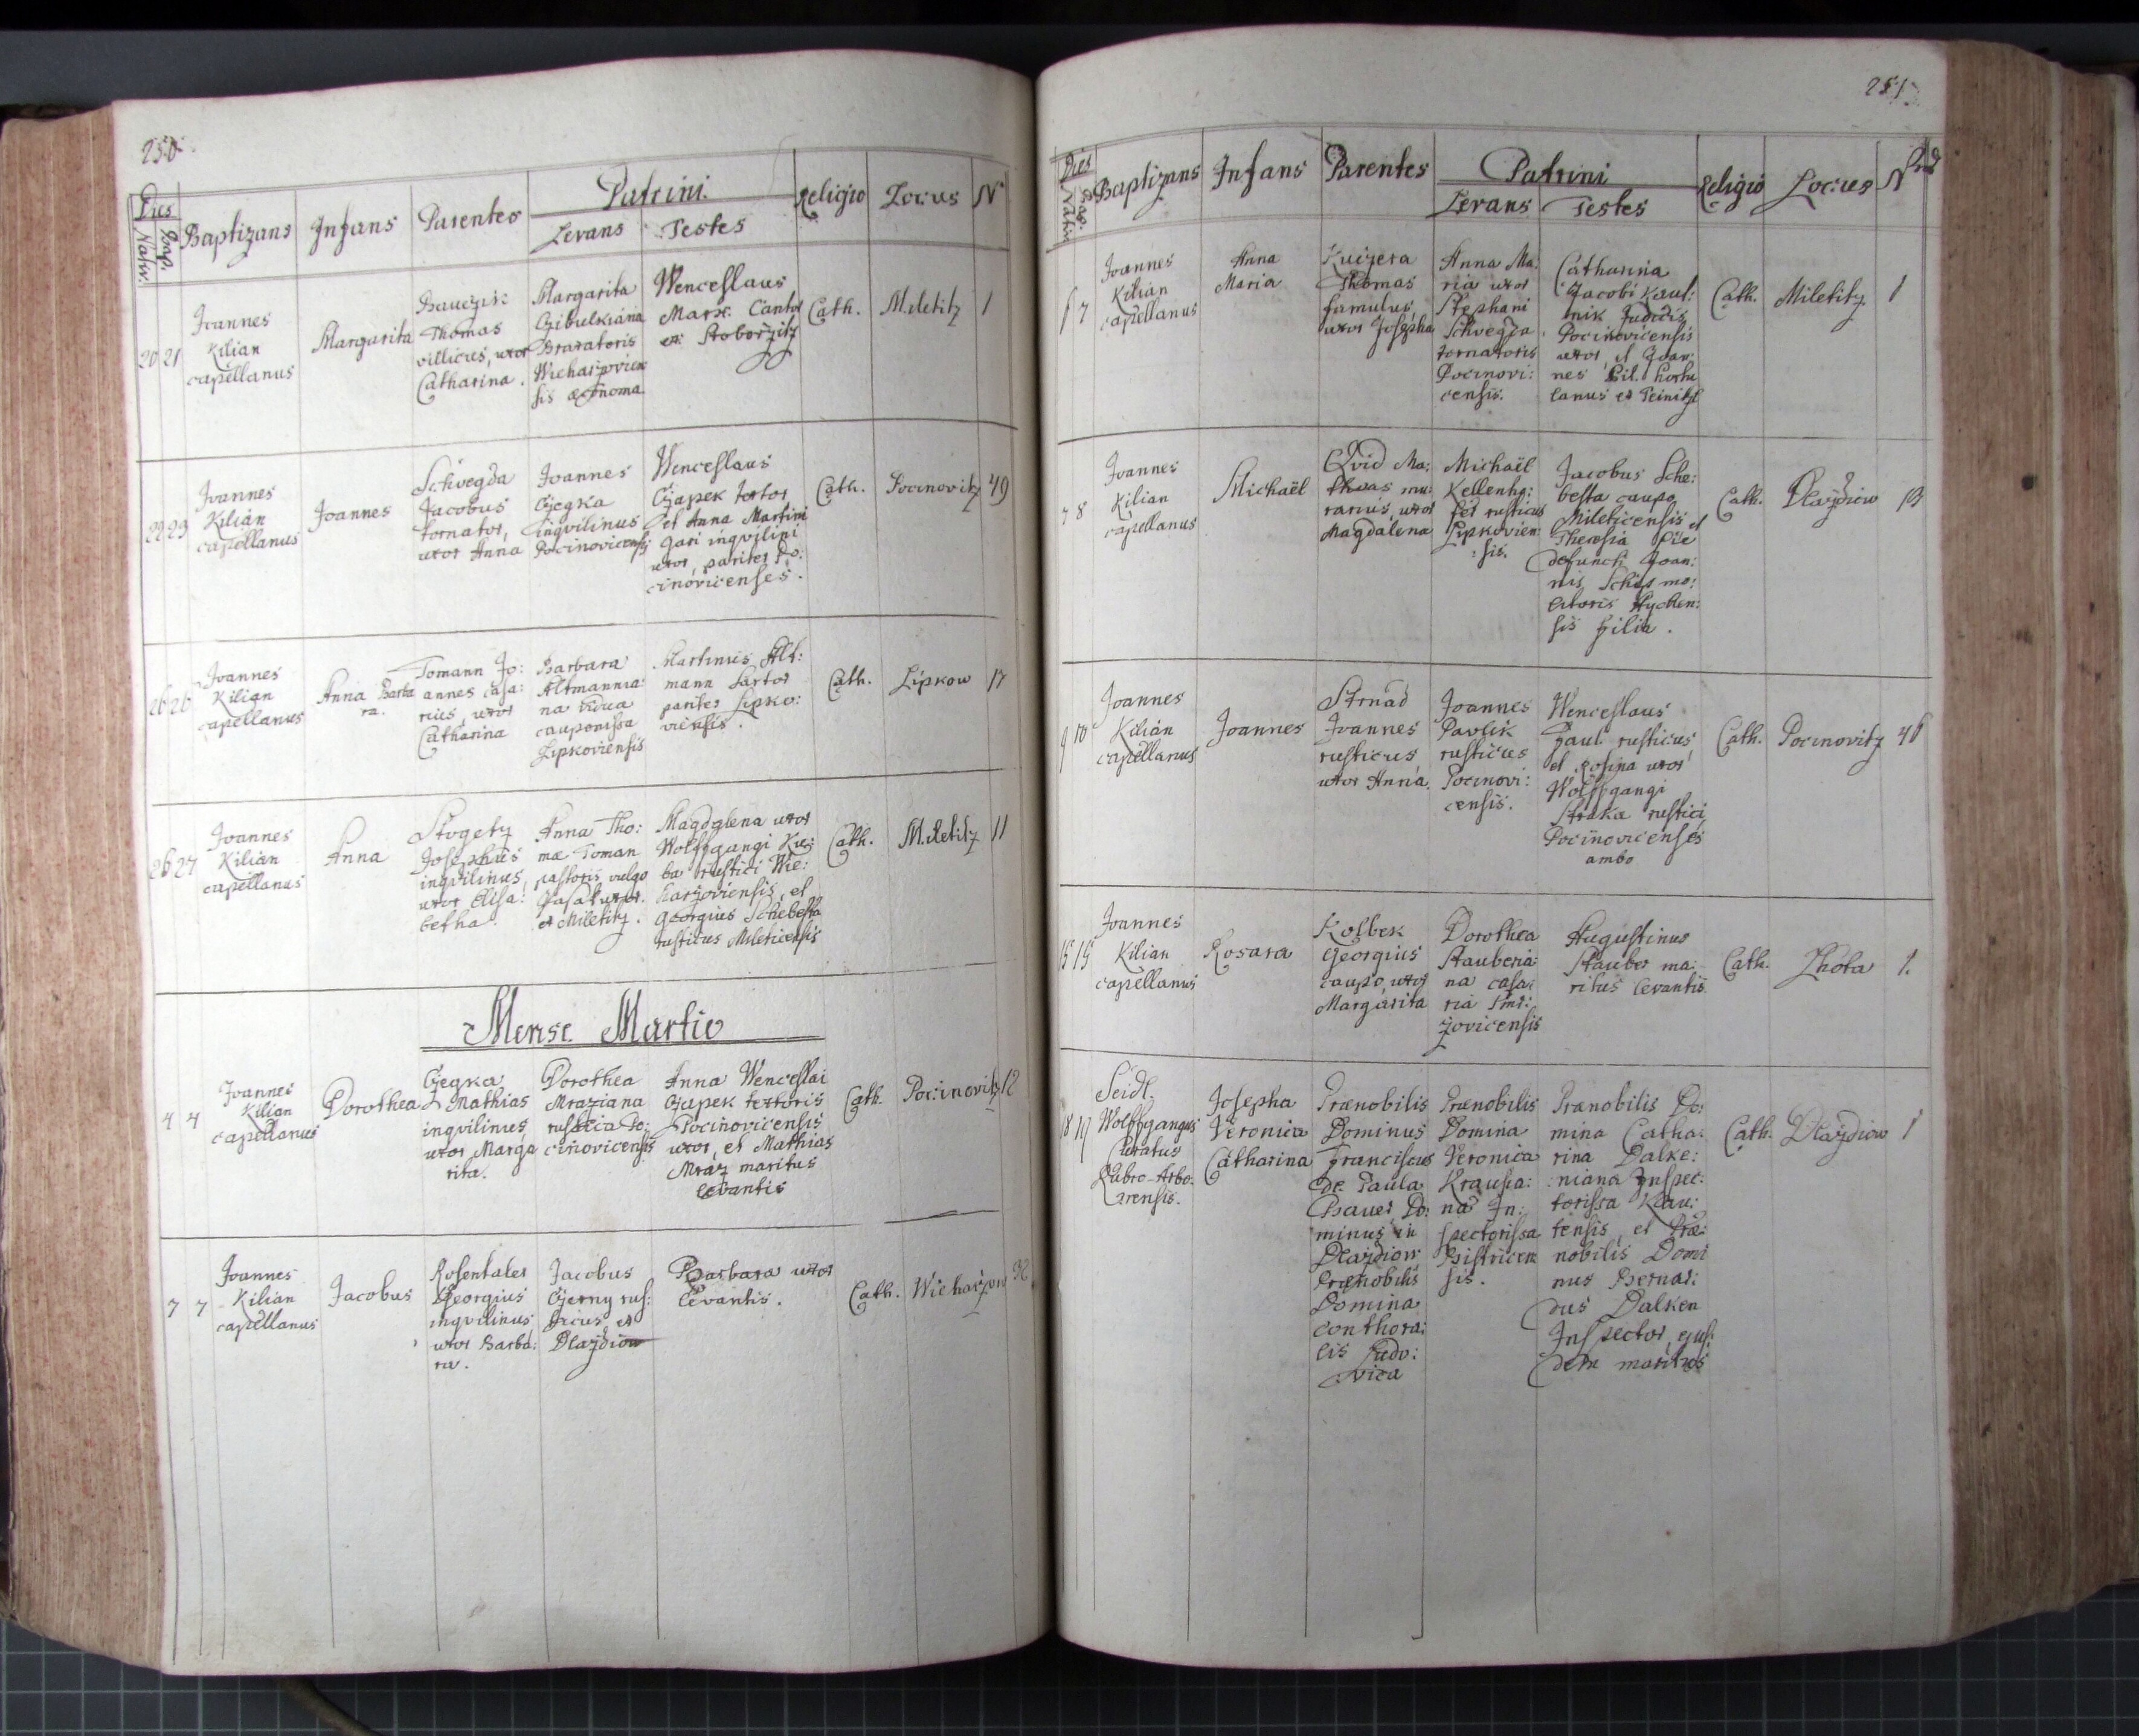 250.
Dies
Nativ. Bap.
Baptizans Infans Parentes
Patrini.
Levans Testes
Religio Locus Nº
20 21
Joannes
Kilian
capellanus
Margarita
Thomas
villicus, uxor
Catharina.
Margarita
Czibulkiana
Braxatoris
sis œconoma
Wenceslaus
Marx. Cantor
ex Stoborzitz
Cath.
Miletitz
1
22 23
Joannes
Kilian
capellanus
Joannes
Schvegda
Jacobus
tornator,
uxor Anna
Joannes
Czegka
inqvilinus
Pocinovicensis
Wenceslaus
Czapek textor
et Anna Martini
Gari inqvilini
uxor, pariter Po:
cinovicenses.
Cath.
Pocinovitz
49
26 26
Joannes
Kilian
capellanus
Anna Barba
ra.
Tomann Jo:
annes casa:
rius, uxor
Catharina
Barbara
Altmannia:
na vidua
cauponissa
Lipkoviensis
Martinus Alt:
mann sartor
pariter Lipko:
viensis.
Cath.
Lipkow
17
26 27
Joannes
Kilian
capellanus
Anna
Josephus
inqvilinus,
uxor Elisa:
betha.
Anna Tho:
mæ Toman
pastoris, vulgo
uxor.
ex Miletitz.
Magdalena uxor
Wolffgangi Ku:
ba rustici Wie:
harzoviensis, et
Georgius Schebesta
rusticus Mileticensis
Cath.
Miletitz
11
Mense Martio
4 4
Joannes
Kilian
capellanus
Dorothea
Czegka
Mathias
inqvilinus,
uxor Marga
rita.
Dorothea
Mraziana
rustica Po:
cinovicensis
Anna Wenceslai
Czapek textoris
Pocinovicensis
uxor, et Mathias
Mraz maritus
levantis
Cath.
Pocinovitz
12
7 7
Joannes
Kilian
capellanus
Jacobus
Rosentaler
Georgius
inqvilinus
uxor Barba:
ra.
Jacobus
Czerny rus:
ticus, ex
Dlazdiow
Barbara uxor
levantis.
Cath.
Wieharzow
251
Dies
Nativ. Bap.
Baptizans Infans Parentes
Patrini
Levans Testes
Religio Locus
7
Joannes
Kilian
capellanus
Anna
Maria
Kuczera
Thomas
famulus,
uxor Josepha
Anna Ma:
ria uxor
Stephani
Schvegda
tornatoris
Pocinovi:
censis.
Catharina
Jacobi Kaut:
nik Judicis
Pocinovicensis
uxor, et Joan:
nes Bil. hortu
lanus ex Teinitzl
Cath.
Miletitz
1
7 8
Joannes
Kilian
capellanus
Michaël
Qvid Ma:
thias mu:
rarius, uxor
Magdalena
Michaël
Kellenho:
fer rusticus
Lipkovien:
sis.
Jacobus Sche:
besta caupo
Mileticensis et
Theresia piè
defuncti Joan:
nis
litoris
sis filia.
Cath.
Dlazdiow
13
9 10
Joannes
Kilian
capellanus
Joannes
Strnad
Joannes
rusticus,
uxor Anna
Joannes
Pavlik
rusticus
Pocinovi:
censis.
Wenceslaus
Paul rusticus,
et Rosina uxor
Wolffgangi
Straka rustici,
Pocinovicenses
ambo
Cath.
Pocinovitz
15 15
Joannes
Kilian
capellanus
Rosara
Kolbek
Georgius
caupo, uxor
Margarita
Dorothea
Stauberia:
na casa:
ria Smr:
zovicensis
Augustinus
Stauber ma:
ritus levantis
Cath.
Lhota
1.
18 19
Seidl
Wolffgangus
Curatus
Rubro-Arbo:
rensis.
Josepha
Veronica
Catharina
Prænobilis
Dominus
Franciscus
de Paula
Bauer Do:
minus in
Dlazdiow
prænobilis
Domina
conthora:
lis Ludo:
vica
Prænobilis
Domina
Veronica
Krausia:
na In:
spectorissa
Bistricen
sis.
Prænobilis Do:
mina Catha:
rina Dalke:
niana Inspec:
torissa Kau:
tensis, et Præ:
nobilis Domi
nus Bernar:
dus Dalken
Inspector, ejus:
dem maritus
Cath.
Dlazdiow
1